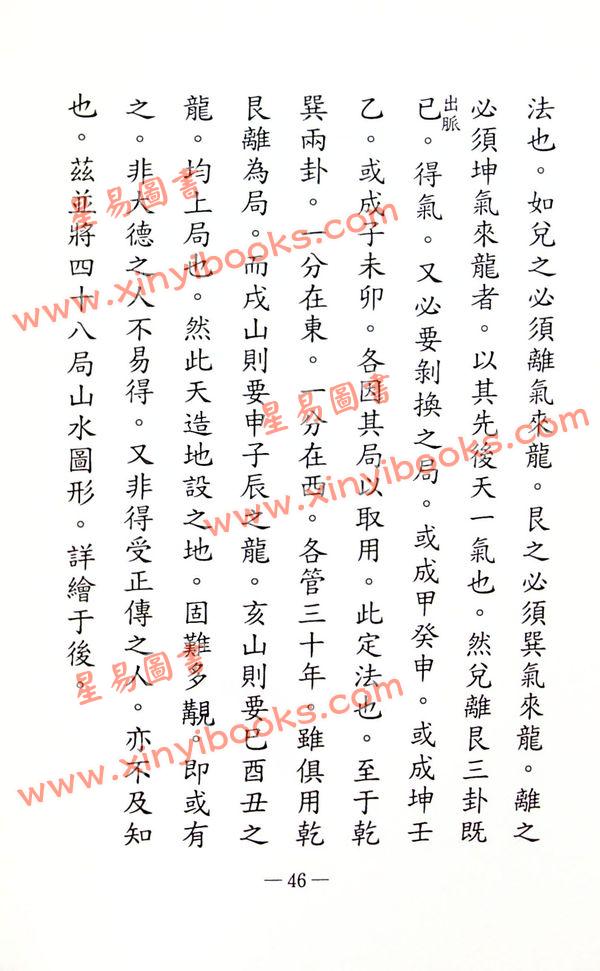 法也。如兌之必須離氣來龍。艮之必須巽氣來龍。離之
必須坤氣來龍者。以其先後天一氣也。然兌離艮三卦既
已出脈。得氣。又必要剝換之局。或成甲癸申。或成坤壬
乙。或成子未卯。各因其局以取用。此定法也。至于乾
巽兩卦。一分在東。一分在西。各管三十年。雖俱用乾
艮離為局。而戌山則要申子辰之龍。亥山則要巳酉丑之
龍。均上局也。然此天造地設之地。固難多覯。即或有
之。非大德之人不易得。又非得受正傳之人。亦不及知
也。茲並將四十八局山水圖形。詳繪于後。
— 46 —
星易圖書
www.xinyibooks.com
星易圖書
www.xinyibooks.com
星易圖書
www.xinyibooks.com